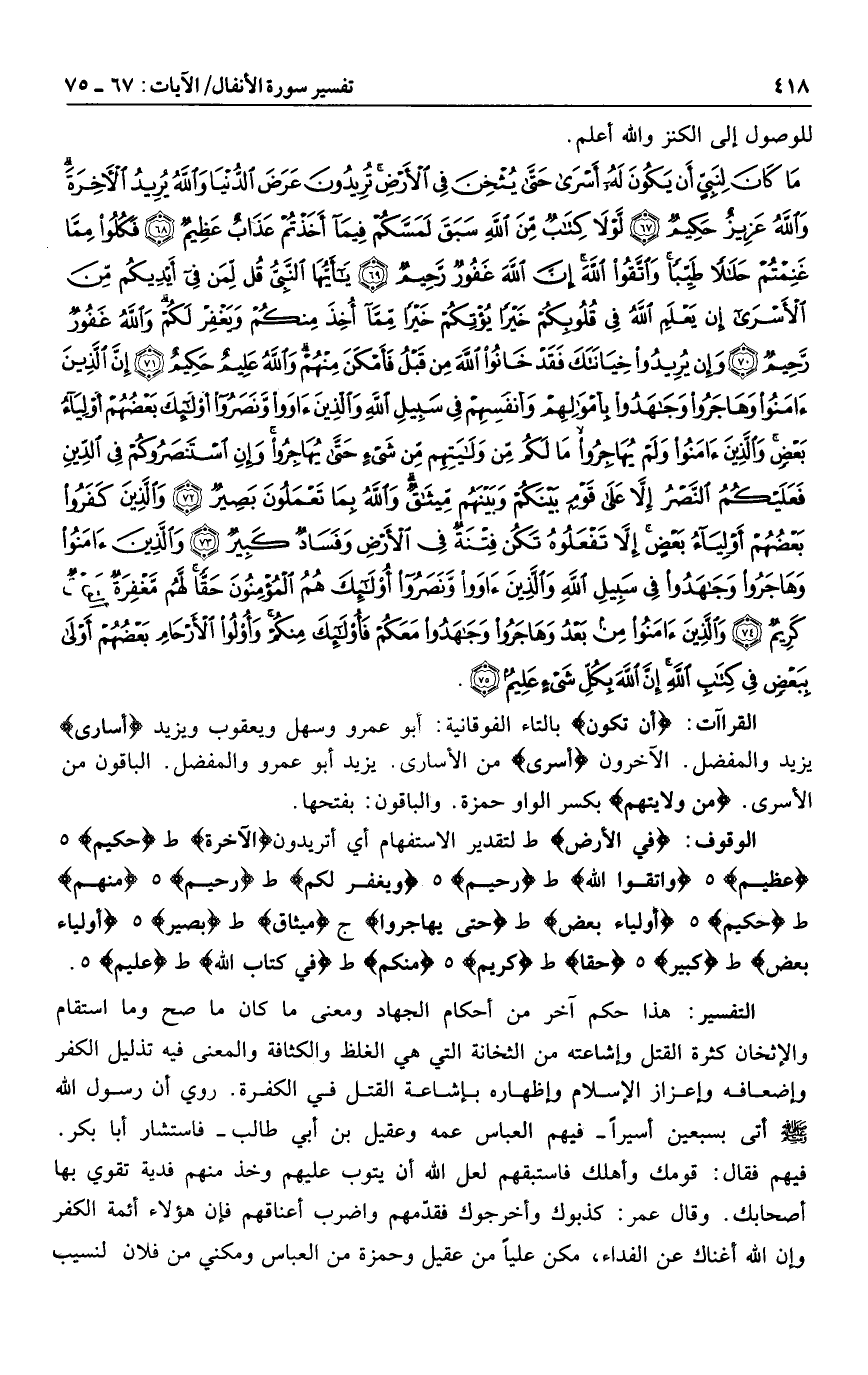 ٤١٨ تفسير سورة الأنفال/ الآيات: ٦٧ ـ ٧٥
للوصول إلى الكنز والله أعلم.
مَا كَانَ لِنَبِيٍّ أَن يَكُونَ لَهُۥٓ أَسْرَىٰ حَتَّىٰ يُثْخِنَ فِى ٱلْأَرْضِۚ تُرِيدُونَ عَرَضَ ٱلدُّنْيَا وَٱللَّهُ يُرِيدُ ٱلْءَاخِرَةَۗ
وَٱللَّهُ عَزِيزٌ حَكِيمٌ ﴿٦٧﴾ لَّوْلَا كِتَٰبٌ مِّنَ ٱللَّهِ سَبَقَ لَمَسَّكُمْ فِيمَآ أَخَذْتُمْ عَذَابٌ عَظِيمٌ ﴿٦٨﴾ فَكُلُوا۟ مِمَّا
غَنِمْتُمْ حَلَٰلًا طَيِّبًاۚ وَٱتَّقُوا۟ ٱللَّهَۚ إِنَّ ٱللَّهَ غَفُورٌ رَّحِيمٌ ﴿٦٩﴾ يَٰٓأَيُّهَا ٱلنَّبِىُّ قُل لِّمَن فِىٓ أَيْدِيكُم مِّنَ
ٱلْأَسْرَىٰٓ إِن يَعْلَمِ ٱللَّهُ فِى قُلُوبِكُمْ خَيْرًا يُؤْتِكُمْ خَيْرًا مِّمَّآ أُخِذَ مِنكُمْ وَيَغْفِرْ لَكُمْۗ وَٱللَّهُ غَفُورٌ
رَّحِيمٌ ﴿٧٠﴾ وَإِن يُرِيدُوا۟ خِيَانَتَكَ فَقَدْ خَانُوا۟ ٱللَّهَ مِن قَبْلُ فَأَمْكَنَ مِنْهُمْۗ وَٱللَّهُ عَلِيمٌ حَكِيمٌ ﴿٧١﴾ إِنَّ ٱلَّذِينَ
ءَامَنُوا۟ وَهَاجَرُوا۟ وَجَٰهَدُوا۟ بِأَمْوَٰلِهِمْ وَأَنفُسِهِمْ فِى سَبِيلِ ٱللَّهِ وَٱلَّذِينَ ءَاوَوا۟ وَّنَصَرُوٓا۟ أُو۟لَٰٓئِكَ بَعْضُهُمْ أَوْلِيَآءُ
بَعْضٍۚ وَٱلَّذِينَ ءَامَنُوا۟ وَلَمْ يُهَاجِرُوا۟ مَا لَكُم مِّن وَلَٰيَتِهِم مِّن شَىْءٍ حَتَّىٰ يُهَاجِرُوا۟ۚ وَإِنِ ٱسْتَنصَرُوكُمْ فِى ٱلدِّينِ
فَعَلَيْكُمُ ٱلنَّصْرُ إِلَّا عَلَىٰ قَوْمٍۭ بَيْنَكُمْ وَبَيْنَهُم مِّيثَٰقٌۗ وَٱللَّهُ بِمَا تَعْمَلُونَ بَصِيرٌ ﴿٧٢﴾ وَٱلَّذِينَ كَفَرُوا۟
بَعْضُهُمْ أَوْلِيَآءُ بَعْضٍۚ إِلَّا تَفْعَلُوهُ تَكُن فِتْنَةٌ فِى ٱلْأَرْضِ وَفَسَادٌ كَبِيرٌ ﴿٧٣﴾ وَٱلَّذِينَ ءَامَنُوا۟
وَهَاجَرُوا۟ وَجَٰهَدُوا۟ فِى سَبِيلِ ٱللَّهِ وَٱلَّذِينَ ءَاوَوا۟ وَّنَصَرُوٓا۟ أُو۟لَٰٓئِكَ هُمُ ٱلْمُؤْمِنُونَ حَقًّاۚ لَّهُم مَّغْفِرَةٌ
كَرِيمٌ ﴿٧٤﴾ وَٱلَّذِينَ ءَامَنُوا۟ مِنۢ بَعْدُ وَهَاجَرُوا۟ وَجَٰهَدُوا۟ مَعَكُمْ فَأُو۟لَٰٓئِكَ مِنكُمْۚ وَأُو۟لُوا۟ ٱلْأَرْحَامِ بَعْضُهُمْ أَوْلَىٰ
بِبَعْضٍ فِى كِتَٰبِ ٱللَّهِۗ إِنَّ ٱللَّهَ بِكُلِّ شَىْءٍ عَلِيمٌۢ ﴿٧٥﴾ .
القراآت: ﴿أن تكون﴾ بالتاء الفوقانية: أبو عمرو وسهل ويعقوب ويزيد ﴿أسارى﴾
يزيد والمفضل. الآخرون ﴿أسرى﴾ من الأسارى. يزيد أبو عمرو والمفضل. الباقون من
الأسرى. ﴿من ولايتهم﴾ بكسر الواو حمزة. والباقون: بفتحها.
الوقوف: ﴿في الأرض﴾ ط لتقدير الاستفهام أي أتريدون﴿الآخرة﴾ ط ﴿حكيم﴾ ٥
﴿عظيم﴾ ٥ ﴿واتقوا الله﴾ ط ﴿رحيم﴾ ٥ ﴿ويغفر لكم﴾ ط ﴿رحيم﴾ ٥ ﴿منهم﴾
ط ﴿حكيم﴾ ٥ ﴿أولياء بعض﴾ ط ﴿حتى يهاجروا﴾ ج ﴿ميثاق﴾ ط ﴿بصير﴾ ٥ ﴿أولياء
بعض﴾ ط ﴿كبير﴾ ٥ ﴿حقا﴾ ط ﴿كريم﴾ ٥ ﴿منكم﴾ ط ﴿في كتاب الله﴾ ط ﴿عليم﴾ ٥ .
التفسير: هذا حكم آخر من أحكام الجهاد ومعنى ما كان ما صح وما استقام
والإثخان كثرة القتل وإشاعته من الثخانة التي هي الغلظ والكثافة والمعنى فيه تذليل الكفر
وإضعافه وإعزاز الإسلام وإظهاره بإشاعة القتل في الكفرة. روي أن رسول الله
ﷺ أتى بسبعين أسيراً ـ فيهم العباس عمه وعقيل بن أبي طالب ـ فاستشار أبا بكر.
فيهم فقال: قومك وأهلك فاستبقهم لعل الله أن يتوب عليهم وخذ منهم فدية تقوي بها
أصحابك. وقال عمر: كذبوك وأخرجوك فقدّمهم واضرب أعناقهم فإن هؤلاء أئمة الكفر
وإن الله أغناك عن الفداء، مكن علياً من عقيل وحمزة من العباس ومكني من فلان لنسيب